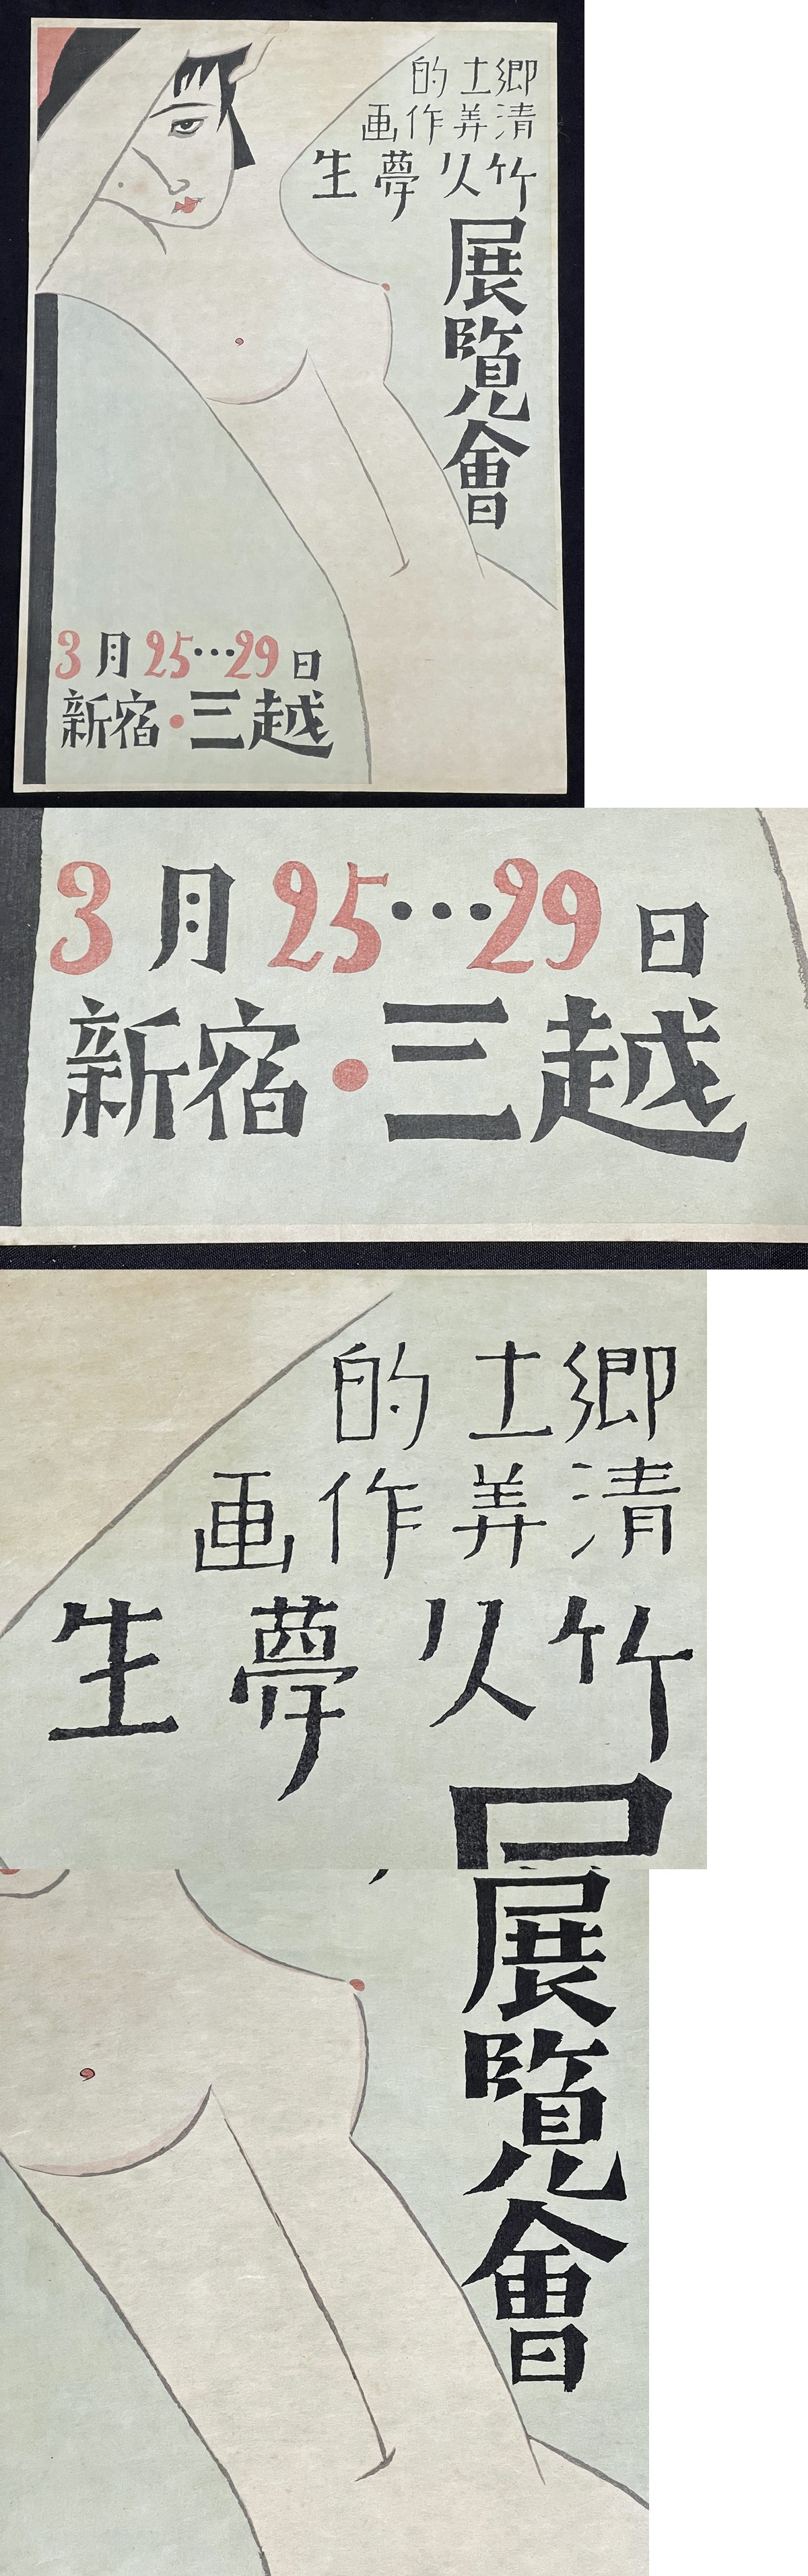 郷土的
清作画
竹久夢生
展覧會
3月25…29日
新宿・三越
3月25…29日
新宿・三越
郷土的
清作画
竹久夢生
展覧會